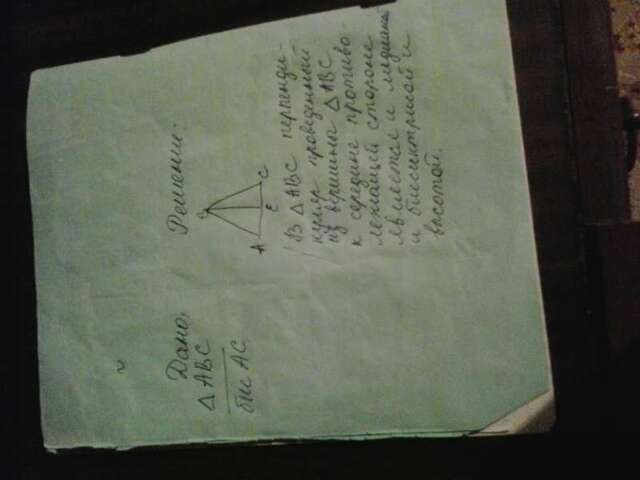 Дано:
△ ABC
бис AC
Решение:
A
C
E
В △ ABC перпенди-
куляр проведенный
из вершины △ ABC
к середине противо-
лежащей стороне
является и медианой
и биссектрисой и
высотой.